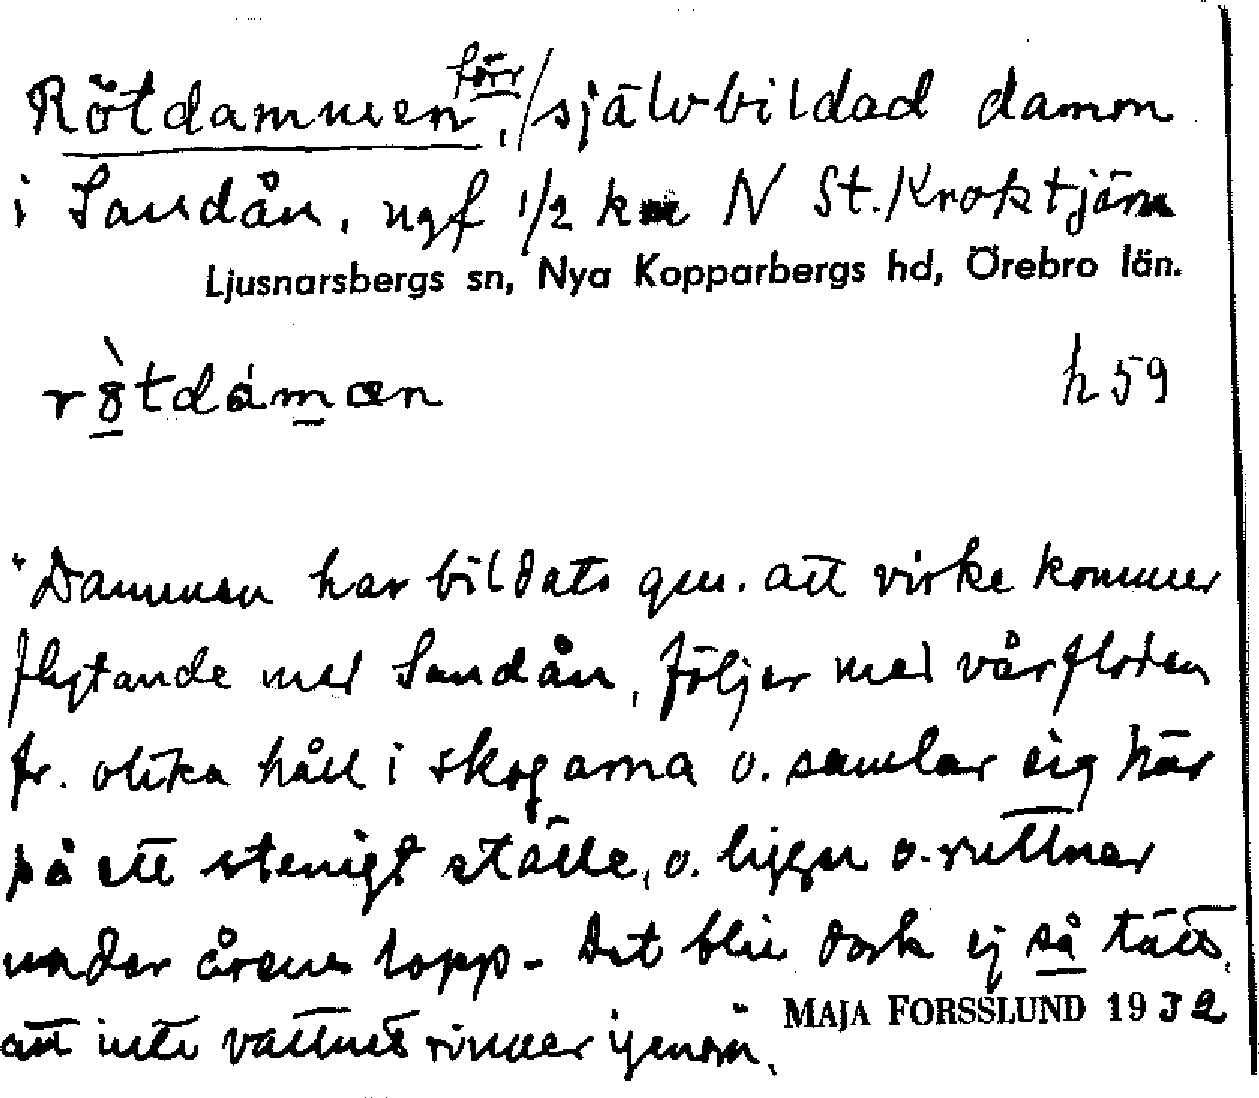 Rötdammen, förr / självbildad damm
i Sandån, ngf 1/2 km N St. Kroktjärn
Ljusnarsbergs sn, Nya Kopparbergs hd, Örebro län.
h 59
"Dammen har bildats gm. att virke kommer
flytande med Sandån, följer med vårfloden
fr. olika håll i skogarna o. samlar sig här
på ett stenigt ställe, o. ligger o. ruttnar
under årens lopp - Det blir dock ej så tätt,
att inte vattnet rinner igenom."
MAJA FORSSLUND 1932